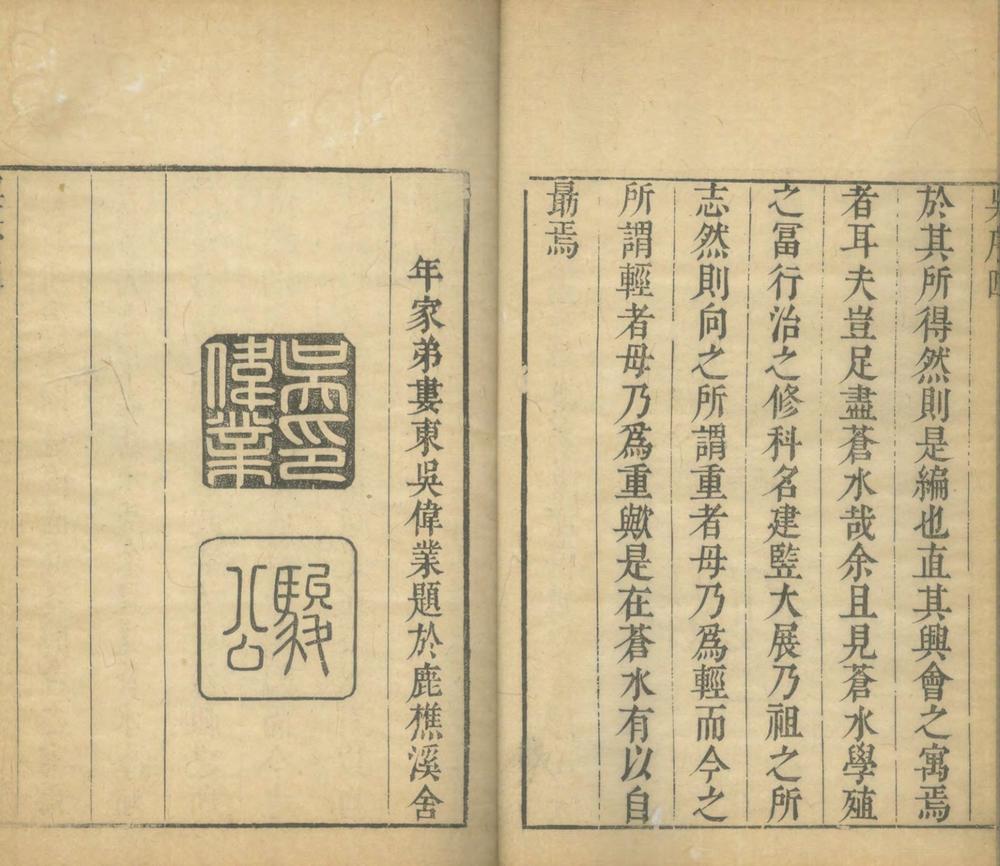 於其所得然則是編也直其興會之寓焉
者耳夫豈足盡蒼水哉余且見蒼水學殖
之冨行治之修科名建竪大展乃祖之所
志然則向之所謂重者毋乃爲輕而今之
所謂輕者毋乃爲重歟是在蒼水有以自
勗焉
年家弟婁東吳偉業題於鹿樵溪舍
吳偉業印
駿公